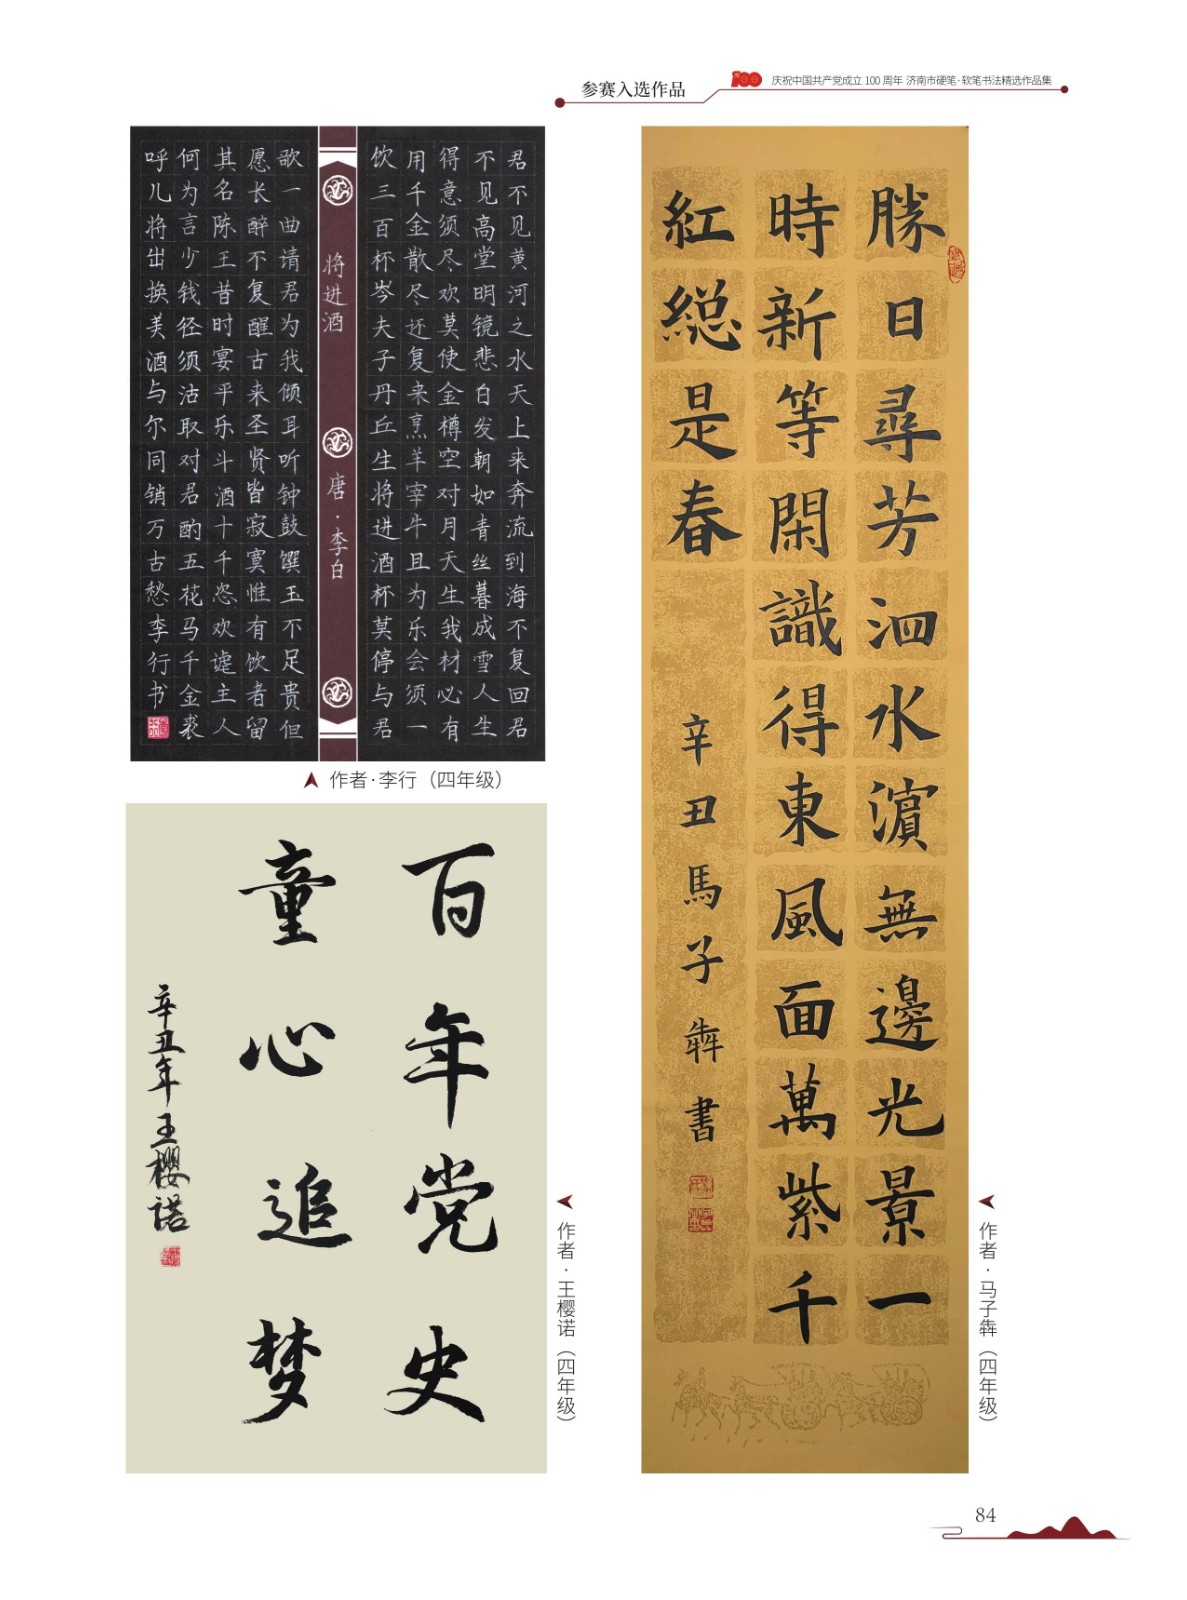 参赛入选作品
100 庆祝中国共产党成立 100 周年 济南市硬笔·软笔书法精选作品集
君不见黄河之水天上来奔流到海不复回君
不见高堂明镜悲白发朝如青丝暮成雪人生
得意须尽欢莫使金樽空对月天生我材必有
用千金散尽还复来烹羊宰牛且为乐会须一
饮三百杯岑夫子丹丘生将进酒杯莫停与君
将进酒 唐·李白
歌一曲请君为我倾耳听钟鼓馔玉不足贵但
愿长醉不复醒古来圣贤皆寂寞惟有饮者留
其名陈王昔时宴平乐斗酒十千恣欢谑主人
何为言少钱径须沽取对君酌五花马千金裘
呼儿将出换美酒与尔同销万古愁李行书
作者·李行（四年级）
百年党史
童心追梦
辛丑年王樱诺
作者·王樱诺（四年级）
勝日尋芳泗水濱無邊光景一
時新等閑識得東風面萬紫千
紅総是春
辛丑馬子犇書
作者·马子犇（四年级）
84